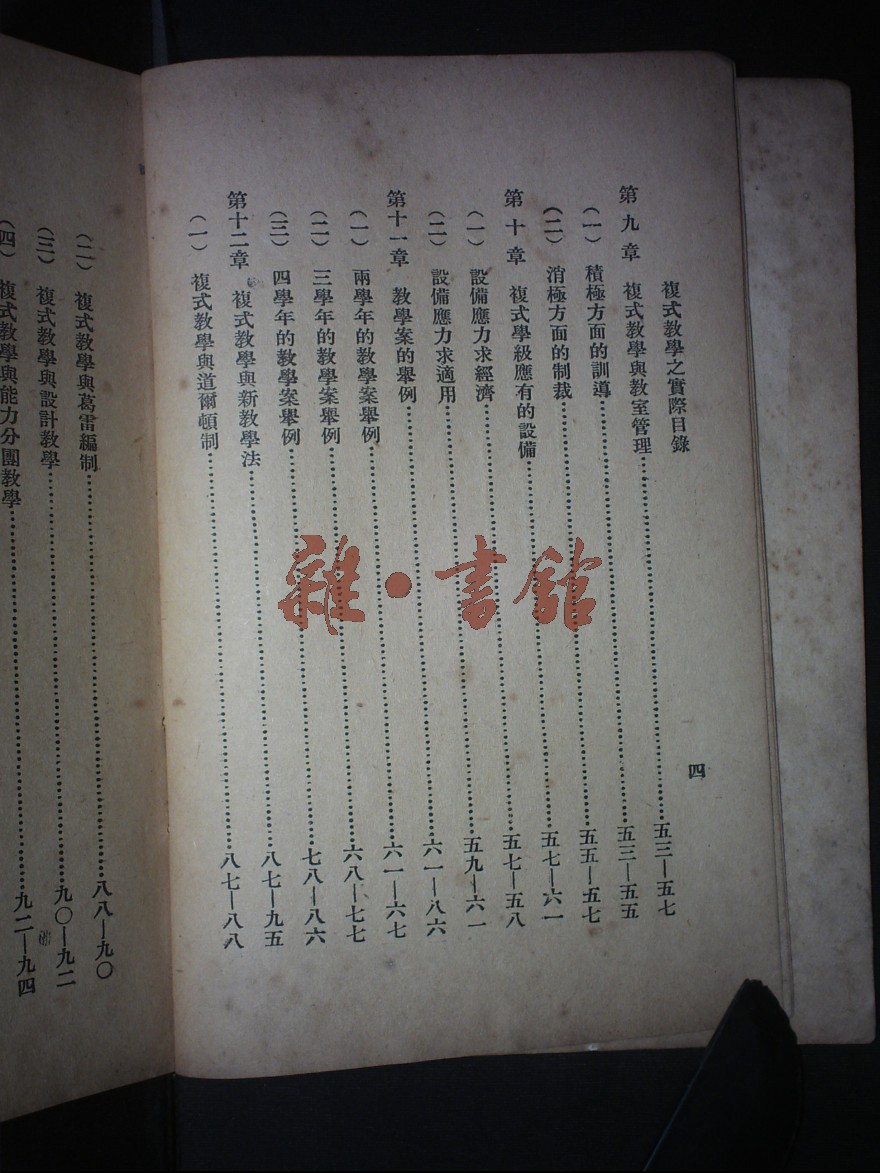 複式教學之實際目錄 四
第九章 複式教學與教室管理……五三—五七
(一) 積極方面的訓導……五三—五五
(二) 消極方面的制裁……五五—五七
第十章 複式學級應有的設備……五七—六一
(一) 設備應力求經濟……五七—五八
(二) 設備應力求適用……五九—六一
第十一章 教學案的舉例……六一—八六
(一) 兩學年的教學案舉例……六一—六七
(二) 三學年的教學案舉例……六八—七七
(三) 四學年的教學案舉例……七八—八六
第十二章 複式教學與新教學法……八七—九五
(一) 複式教學與道爾頓制……八七—八八
(二) 複式教學與葛雷編制……八八—九〇
(三) 複式教學與設計教學……九〇—九二
(四) 複式教學與能力分團教學……九二—九四
雜·書館